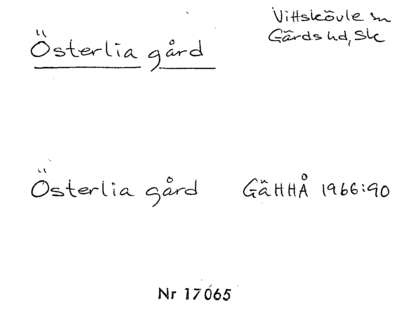 Vittskövle sn
Gärds hd, Sk
Österlia gård
Österlia gård GäHHÅ 1966:90
Nr 17065